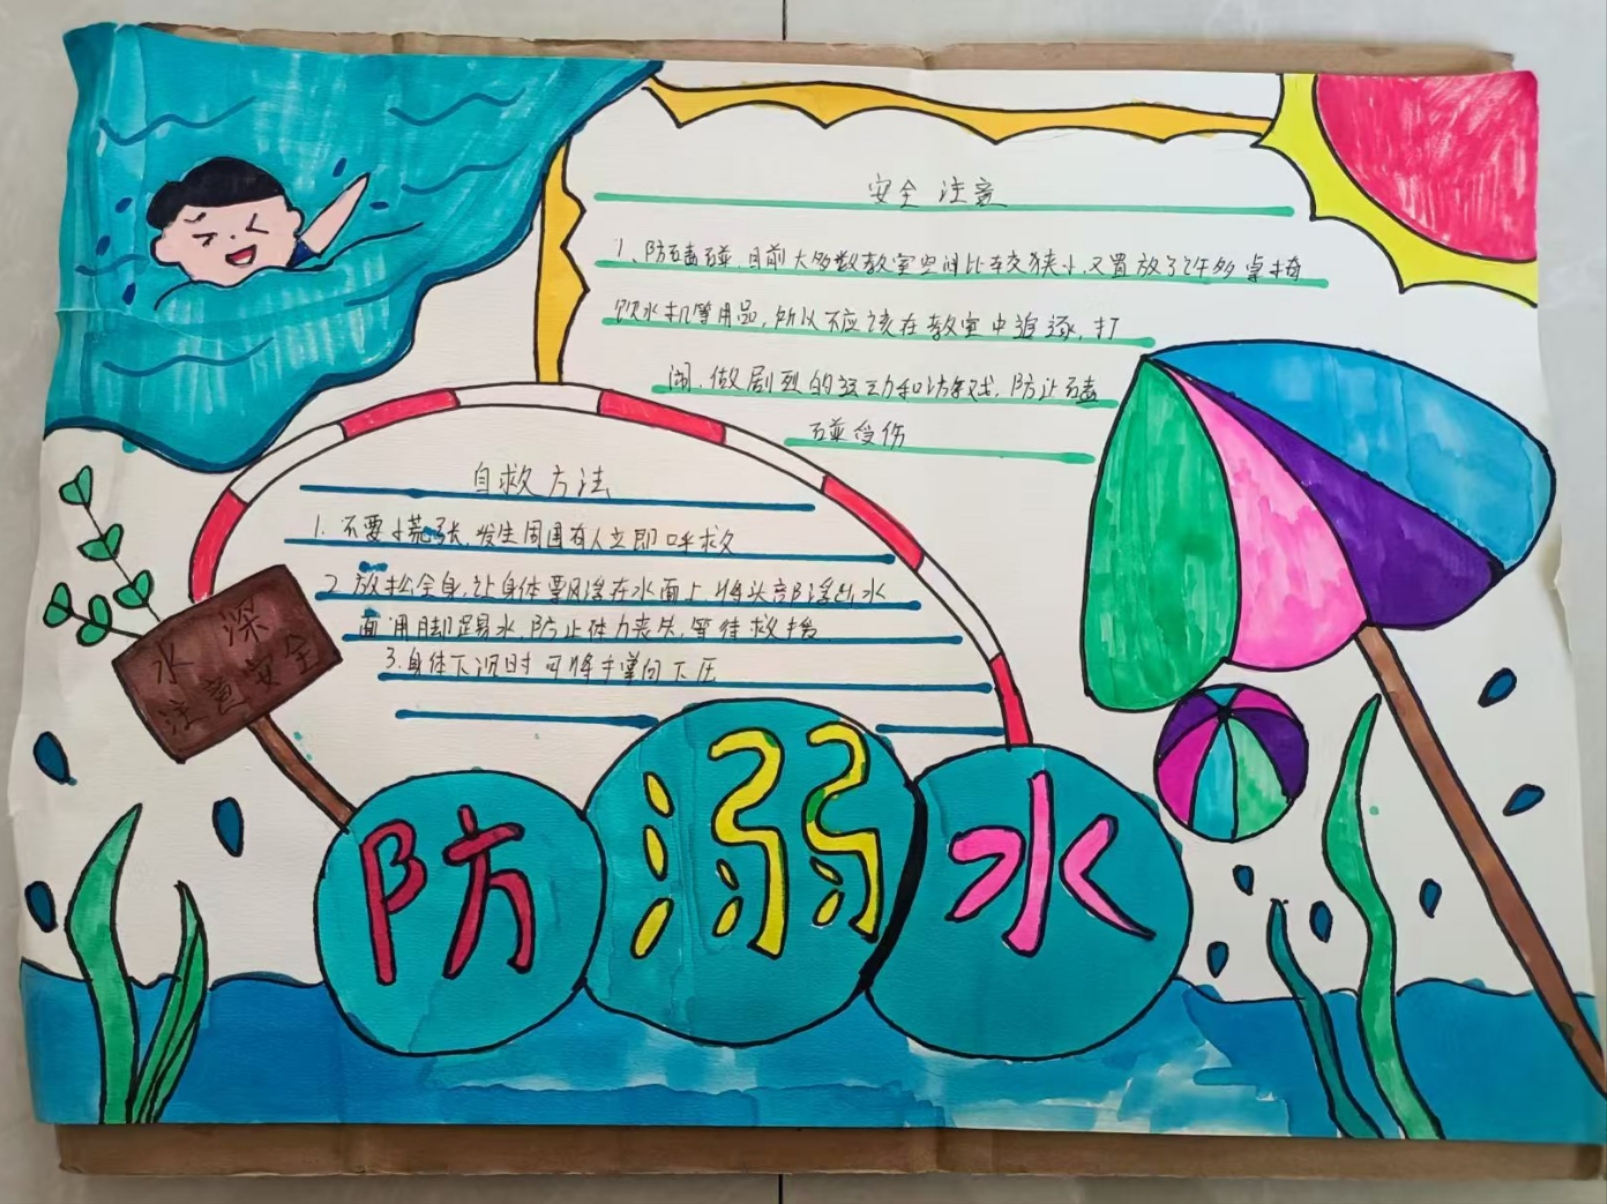 安全注意
1、防磕碰,目前大多数教室空间比较狭小,又置放了许多桌椅
饮水机等用品,所以不应该在教室中追逐,打
闹,做剧烈的运动和游戏,防止磕
碰受伤
自救方法
1. 不要慌张,发生周围有人立即呼救
2 放松全身,让身体飘浮在水面上,将头部浮出水
面用脚踢水,防止体力丧失,等待救援
3.身体下沉时可将手掌向下压
水深
注意安全
防溺水